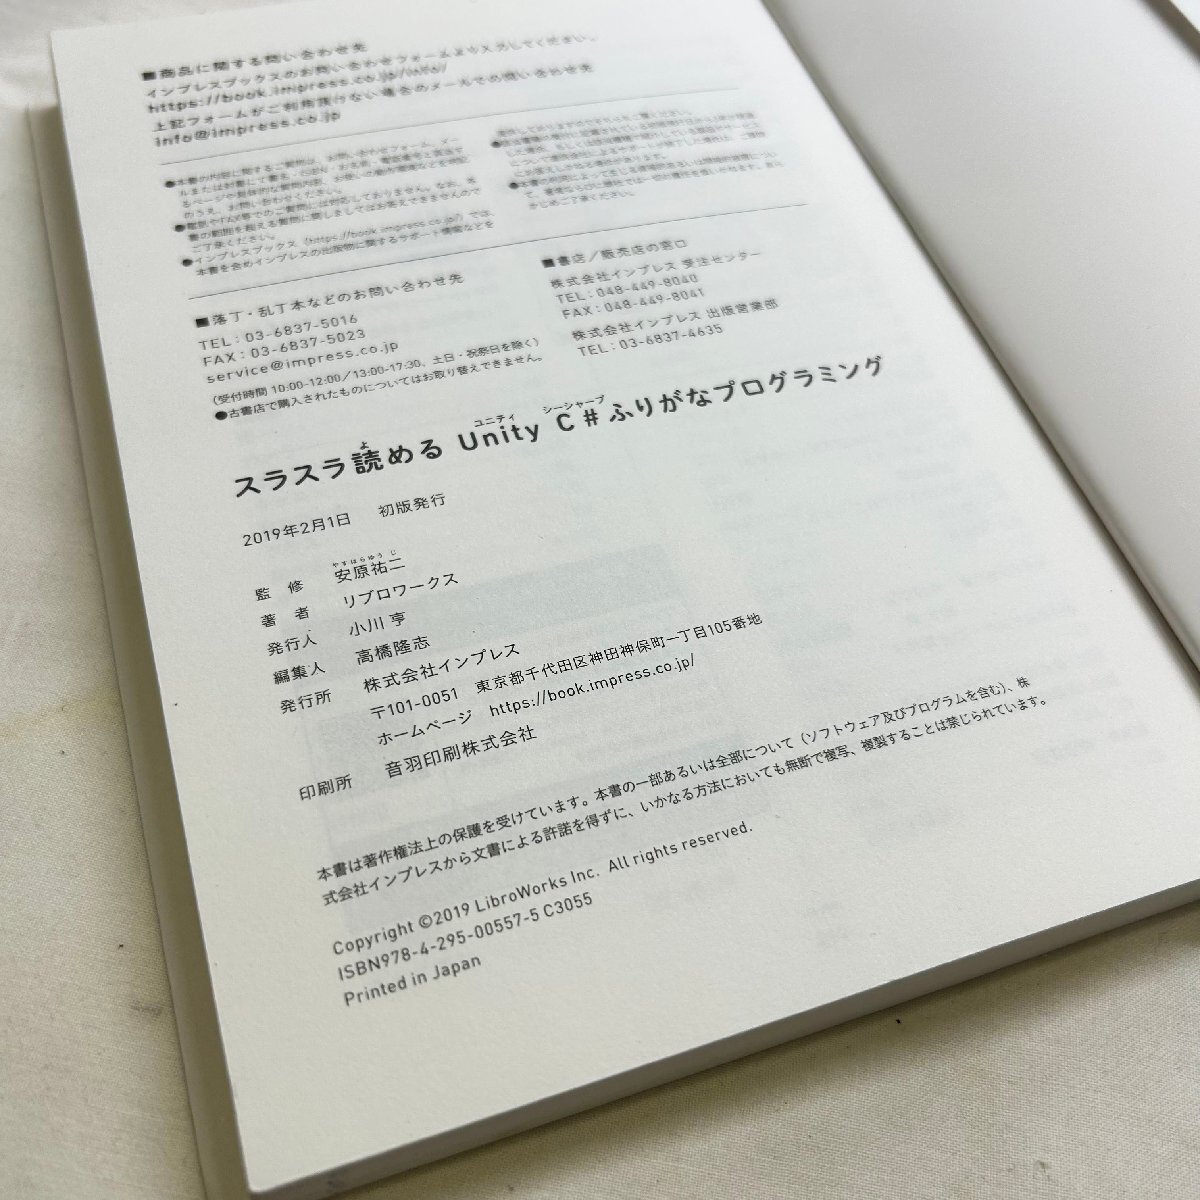 ■商品に関する問い合わせ先
インプレスブックスのお問い合わせフォームより入力してください。
https://book.impress.co.jp/info/
上記フォームがご利用頂けない場合のメールでの問い合わせ先
info@impress.co.jp
●本書の内容に関するご質問は、お問い合わせフォーム、メー
ルまたは封書にて書名・ISBN・お名前・電話番号と該当す
るページや具体的な質問内容、お使いの動作環境などを明記
のうえ、お問い合わせください。
●電話やFAX等でのご質問には対応しておりません。なお、本
書の範囲を超える質問に関しましてはお答えできませんので
ご了承ください。
●インプレスブックス（https://book.impress.co.jp/）では
本書を含めインプレスの出版物に関するサポート情報などを
提供しておりますのでそちらもご覧ください。
●本書の利用によって生じる直接的あるいは間接的被害につい
て、著者ならびに弊社では一切の責任を負いかねます。あら
かじめご了承ください。
■落丁・乱丁本などのお問い合わせ先
TEL：03-6837-5016
FAX：03-6837-5023
service@impress.co.jp
（受付時間 10:00-12:00／13:00-17:30、土日・祝祭日を除く）
●古書店で購入されたものについてはお取り替えできません。
■書店／販売店の窓口
株式会社インプレス 受注センター
TEL：048-449-8040
FAX：048-449-8041
株式会社インプレス 出版営業部
TEL：03-6837-4635
よ ユニティ シーシャープ
スラスラ読める Unity C#ふりがなプログラミング
2019年2月1日 初版発行
やすはらゆうじ
監 修 安原祐二
著 者 リブロワークス
発行人 小川 亨
編集人 高橋隆志
発行所 株式会社インプレス
〒101-0051 東京都千代田区神田神保町一丁目105番地
ホームページ https://book.impress.co.jp/
印刷所 音羽印刷株式会社
本書は著作権法上の保護を受けています。本書の一部あるいは全部について（ソフトウェア及びプログラムを含む）、株
式会社インプレスから文書による許諾を得ずに、いかなる方法においても無断で複写、複製することは禁じられています。
Copyright ©2019 LibroWorks Inc. All rights reserved.
ISBN978-4-295-00557-5 C3055
Printed in Japan